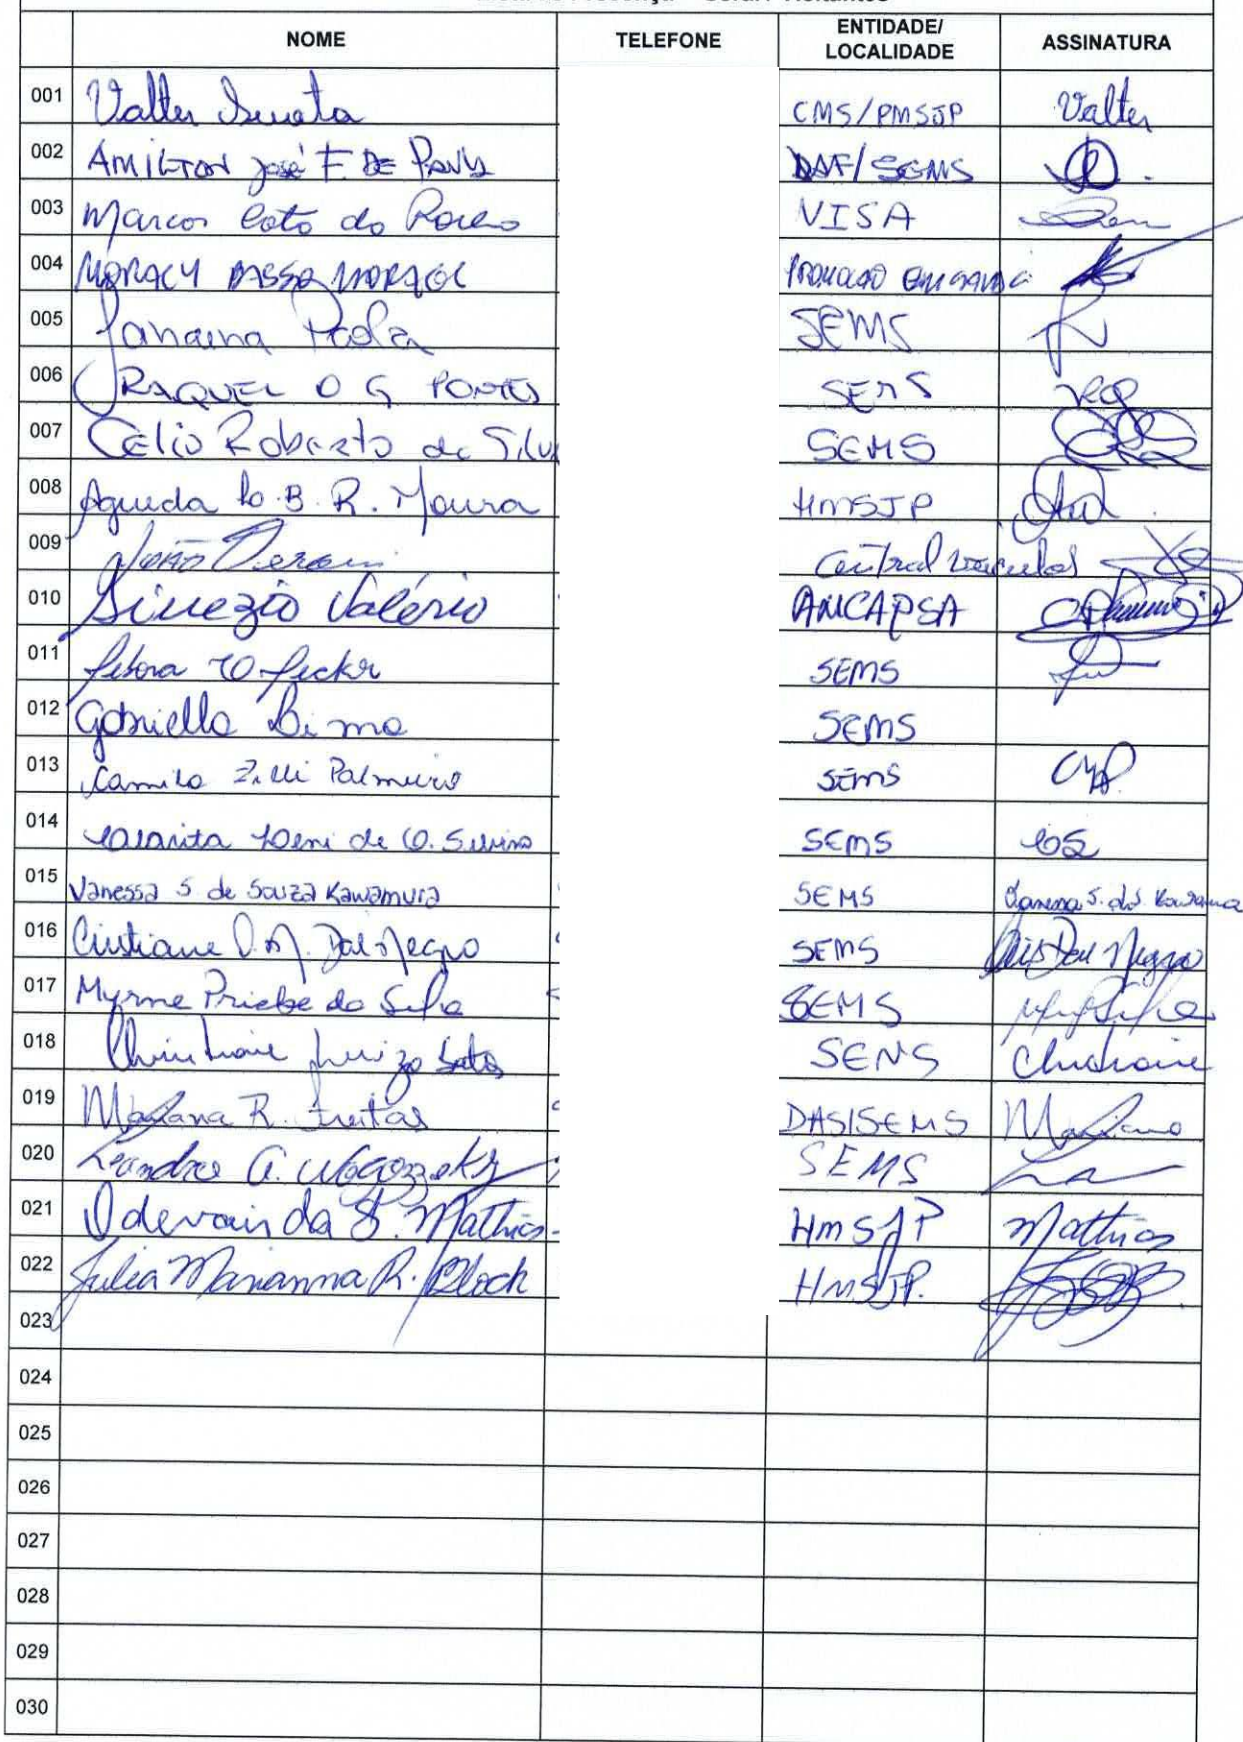 NOME TELEFONE ENTIDADE/ LOCALIDADE ASSINATURA
001 Valter CMS/PMSJP Valter
002 AMILTON José F. DE PAULA DAF/SEMS
003 Marcos do VISA
004 MORACY
005 Janaina Paola SEMS
006 RAQUEL O G PONTES SEMS
007 Célio Roberto da Silva SEMS
008 Agueda B. R. Moura HMSJP
009 João Central veiculos
010 Sinezio Valério AMCAPSA
011 SEMS
012 Gabriella SEMS
013 Camila Zilli Palmeiro SEMS
014 de O. SEMS
015 Vanessa S de Souza Kawamura SEMS Vanessa S. d. S. Kawamura
016 Cristiane Dal Negro SEMS Cris Dal Negro
017 Myrne Priebe da Silva SEMS
018 Christiane Luiza SEMS Christiane
019 Mariana R. Freitas DAS/SEMS Mariana
020 Leandro A. SEMS
021 Odevair da S. Mathias HMSJP Mathias
022 Julia Marianna R. Bloch HMSJP.
023
024
025
026
027
028
029
030